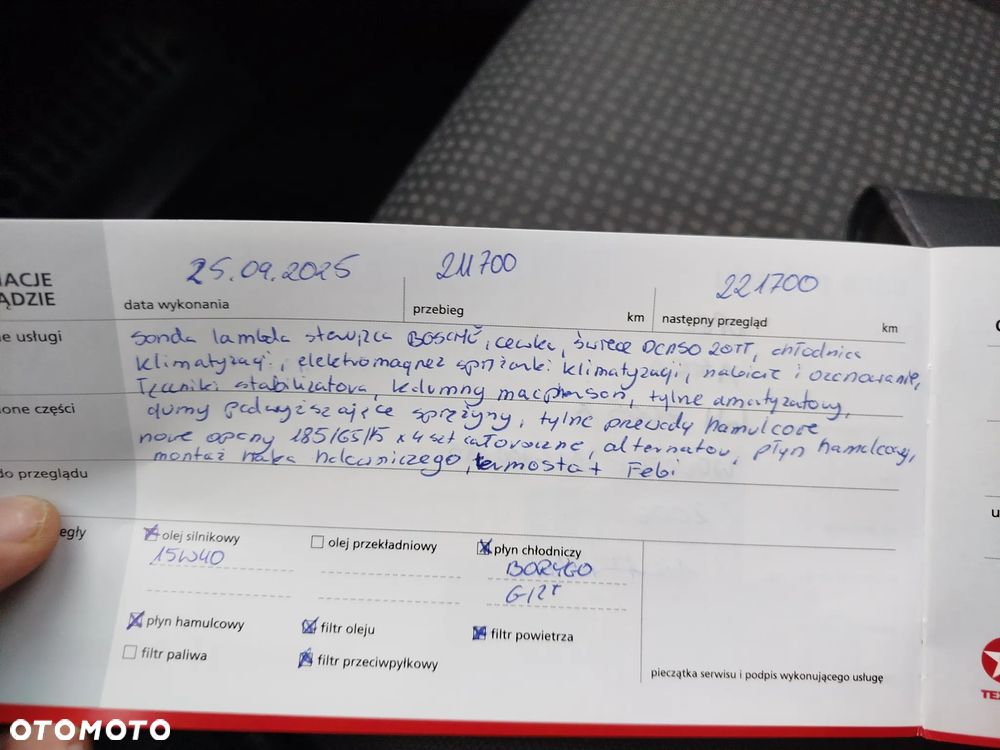 25.09.2025 211700 221700
ACJE
ĄDZIE
data wykonania przebieg km następny przegląd km
ne usługi
sonda lambda sterująca BOSCH, cewka, świece DENSO 20TT, chłodnica
klimatyzacji, elektromagnez sprężarki klimatyzacji, nabicie i ozonowanie,
łączniki stabilizatora, kolumny macpherson, tylne amortyzatory,
one części
gumy podwyższające sprężyny, tylne przewody hamulcowe
nowe opony 185/65/15 x 4 szt całoroczne, alternator, płyn hamulcowy,
montaż haka holowniczego, termostat Febi
do przeglądu
egły
olej silnikowy olej przekładniowy płyn chłodniczy
15W40 BORYGO
G12+
płyn hamulcowy filtr oleju filtr powietrza
filtr paliwa filtr przeciwpyłkowy
pieczątka serwisu i podpis wykonującego usługę
TEX
OTOMOTO